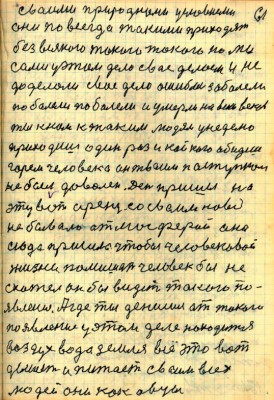 своими природными условиями 61
они повсегда такими приходят
без всякого такого такого но мы
сами у этом деле свае делаем и не
доделали свае дело ошибки заболели
поболели поболели и умерли на веки веков
приходил один раз и кой кого обидел
горем человека он твоим поступком
не был доволен Дет пришел на
эту вот арену со своим новой
не бывало атмосферой она
сюда пришла чтобы человековой
жизни помешать человек бы не
скажет он бы видит такого по-
явления. А где ты денешся от такого
появление у этом деле находится
воздух вода земля всё это вот
движет и питает своим всех
людей они как овцы